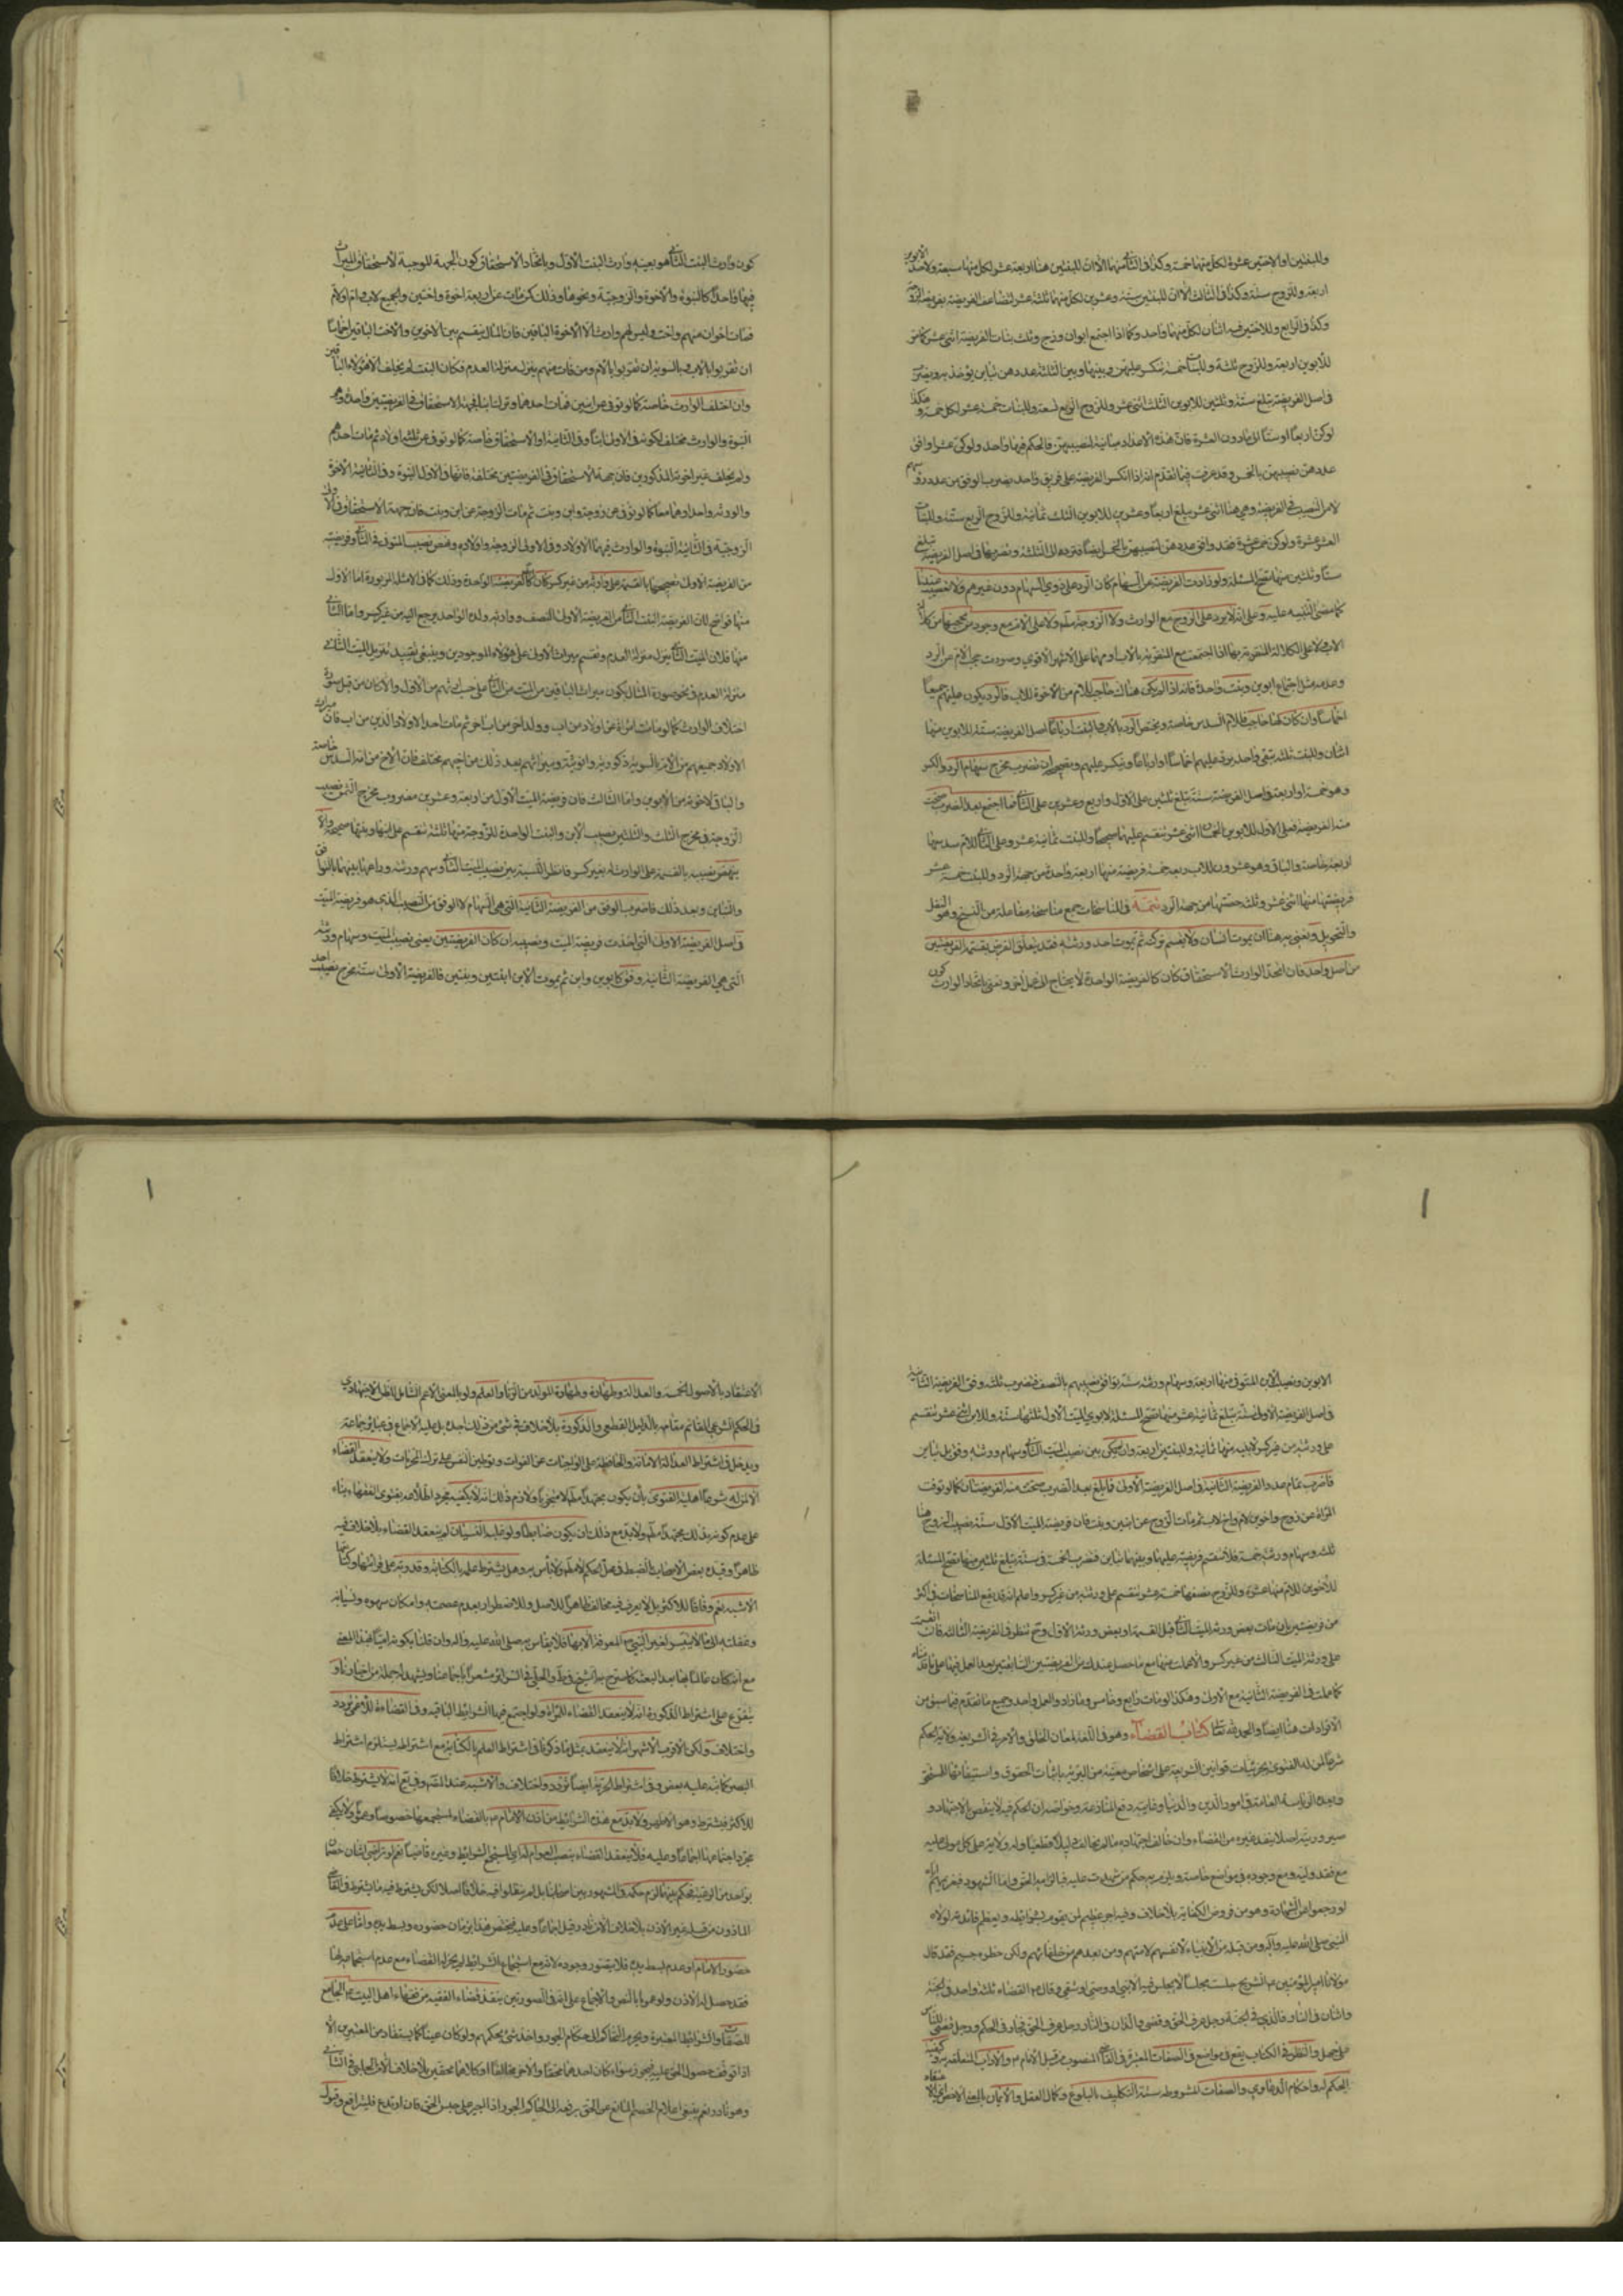 وللبنتين او الاختين عشرة لكل منهما خمسة وكذا في الثاني منهما الا ان للبنتين هنا اربعة عشر لكل منهما سبعة ولاحد الابوين
اربعة وللزوج ستة وكذا في الثالث الا ان للبنتين ستة وعشرين لكل منهما ثلثة عشر لتضاعف الفريضة
وكذا في الرابع وللاختين فيه اثنان لكل منهما واحد وكما اذا اجتمع ابوان وزوج وثلث بنات الفريضة اثنى عشر
للابوين اربعة وللزوج ثلثة وللبنات خمسة تنكسر عليهن وبينها وبين الثلثة عددهن تباين يؤخذ
في اصل الفريضة تبلغ ستة وثلثين للابوين الثلث اثنى عشر وللزوج الربع تسعة وللبنات خمسة عشر لكل خمسة وهكذا
لو كن اربعا او ستا الى ما دون العشرة فان هذه الاعداد مباينة لنصيبهن فالحكم فيها واحد ولو كن عشرا وافق
عددهن نصيبهن بالخمس وقد عرفت فيما تقدم انه اذا انكسر الفريضة على فريق واحد يضرب الوفق من عدد رؤسهم
لا من النصيب في الفريضة وهي هنا اثنى عشر يبلغ اربعا وعشرين للابوين الثلث ثمانية وللزوج الربع ستة وللبنات
العشر عشرة ولو كن خمس عشرة فقد وافق عددهن لنصيبهن بالخمس ايضا فترده الى الثلثة وتضربها في اصل الفريضة تبلغ
ستا وثلثين منها تصح المسئلة ولو زادت الفريضة عن السهام كان الرد على ذوي السهام دون غيرهم ولا تعصيب عندنا
كما مضى التنبيه عليه وعلى انه لا يرد على الزوج مع الوارث ولا الزوجة مط ولا على الام مع وجود من يحجبها
الاب ولا على الكلالة المتقربة بها اذا اجتمعت مع المتقربة بالاب او بهما على الاشهر الاقوى وصورت حجب الام عن الرد
وعدمه مثل اجتماع ابوين وبنت واحدة فانه اذا لم يكن هناك حاجب للام من الاخوة للاب فالرد يكون عليهم جميعا
اخماسا وان كان هنا حاجب فللام السدس خاصة ويختص الرد بالاب والبنت ارباعا اصل الفريضة ستة للابوين منها
اثنان وللبنت ثلثة تبقى واحد يرد عليهم اخماسا او ارباعا وينكسر عليهم وتصحيحه ان تضرب مخرج سهام الرد والكسر
وهو خمسة او اربعة في اصل الفريضة ستة تبلغ ثلثين على الاول واربع وعشرين على الثاني فما اجتمع بعد الضرب صحت
منه الفريضة فعلى الاول للابوين اثنى عشر تنقسم عليهما صحيحا وللبنت ثمانية عشر وعلى الثاني للام سدسها
اربعة خاصة والباقي وهو عشرون للاب وبعه خمسة فريضة منها اربعة واحد من حصة الرد وللبنت خمسة عشر
فريضتها منها اثنى عشر وثلث حصتها من حصة الرد تتمة في المناسخات جمع مناسخة مفاعلة من النسخ وهو النقل
والتحويل ونعني به هنا ان يموت انسان ولا يقسم تركته ثم يموت احد ورثته فقد يتعلق الغرض بقسمة الفريضتين
من اصل واحد فان اتحد الوارث والاستحقاق كان كالفريضة الواحدة لا يحتاج الى عمل اخر ونعني باتحاد الوارث كون
كون وارث الميت الثاني هو بعينه وارث الميت الاول وباتحاد الاستحقاق كون الجهة الموجبة لاستحقاق الميراث
فيهما واحدا كالبنوة والاخوة والزوجية ونحوها وذلك كرجل مات عن اربعة اخوة واختين والجميع لاب وام او لام
فمات اخوان منهم واخت وليس لهم وارث الا الاخوة الباقين فان المال ينقسم بين الاخوين والاخت الباقين اخماسا
ان تقربوا بالاب وبالسوية ان تقربوا بالام ومن مات منهم ينزل منزلة العدم فكان الميت لم يخلف الا هؤلاء الباقين
وان اختلف الوارث خاصة كما لو توفي عن ابنين فمات احدهما وترك ابنا فجهة الاستحقاق في الفريضتين واحدة وهي
البنوة والوارث مختلف لكونه في الاولى ابنا وفي الثانية او الاستحقاق خاصة كما لو توفي عن ثلثة اولاد ثم مات احدهم
ولم يخلف غير اخوته المذكورين فان جهة الاستحقاق في الفريضتين مختلفة فانها في الاول البنوة وفي الثانية الاخوة
والورثة واحد او هما معا كما لو توفي عن زوجة وابن وبنت ثم مات الزوجة عن ابن وبنت فان جهة الاستحقاق في الاولى
الزوجية وفي الثانية البنوة والوارث فيهما الاولاد وفي الاولى الزوجة واولاده ونهض نصيب المتوفى في الثاني وفريضته
من الفريضة الاولى نصيبها بالقسمة على وارثه من غير كسر كان كالفريضة الواحدة وذلك كما في الامثلة المزبورة اما الاول
منها فواضح لان الفريضة الميت الثاني من الفريضة الاولى النصف ووارثه ولده الواحد يرجع اليه من غير كسر واما الثاني
منها فلان الميت الثاني ينزل منزلة العدم وتقسم ميراث الاول على هؤلاء الموجودين وينبغي تقييد تنزيل الميت الثاني
منزلة العدم في نحو صورة المثال بكون ميراث الباقين من الميت من الثاني على حسب ارثهم من الاول والا كان من قبيل صورة
اختلاف الوارث كما لو مات امراة عن اولاد من اب وولد اخر من اب اخر ثم مات احد الاولاد الذين من اب فان ميراث
الاولاد جميعهم من الام بالسوية ذكورية وانوثية وميراثهم بعد ذلك من اخيهم مختلف فان الاخ من امه السدس خاصة
والباقي لاخوته من الابوين واما الثالث فان فريضة الميت الاول من اربعة وعشرين مضروب مخرج الثمن نصيب
الزوجة في مخرج الثلث والثلثين نصيب الابن والبنت الواحدة للزوجة منها ثلثة تنقسم على ابنها وبنتها صحيحة والا
ينهض نصيبه بالقسمة على الوارث له بغير كسر فانظر النسبة بين نصيب الميت الثاني وسهم ورثته وراعها بينهما بالتوافق
والتباين وبعد ذلك فاضرب الوفق من الفريضة الثانية التي هي السهام لا الوفق من النصيب الذي هو فريضة الميت
في اصل الفريضة الاولى التي اخذت فريضة الميت ونصيبه ان كان الفريضتين يعني نصيب الميت وسهام ورثته
التي هي الفريضة الثانية وفق كابوين وابن ثم يموت الابن ابنتين وبنتين فالفريضة الاولى ستة مخرج نصيب احد
الابوين ونصيب الابن المتوفى منها اربعة وسهام ورثته ستة توافق نصيبهم بالنصف فتضرب ثلثة وفق الفريضة الثانية
في اصل الفريضة الاولى ستة يبلغ ثمانية عشر منها تصح المسئلة لابوي الميت الاول ثلثها ستة وللابن اثنى عشر تنقسم
على ورثته من غير كسر لابنيه منها ثمانية وللبنتين اربعة وان لم يكن بين نصيب الميت الثاني وسهام ورثته وفق بل تباين
فاضرب تمام عدد الفريضة الثانية في اصل الفريضة الاولى فما بلغ بعد الضرب صحت منه الفريضتان كما لو توفت
المراة عن زوج واخوين لام واخ لاب ثم مات الزوج عن ابنين وبنت فان فريضة الميت الاول ستة نصيب الزوج منها
ثلثة وسهام ورثته خمسة فلا تنقسم فريضته عليها وبينهما تباين فتضرب الخمسة في ستة يبلغ ثلثين منها تصح المسئلة
للاخوين للام منها عشرة وللزوج نصفها خمسة عشر تنقسم على ورثته من غير كسر واعلم انه قد يقع المناسخات في اكثر
من فريضتين بان مات بعض ورثة الميت الثاني قبل القسمة او بعض ورثة الاول وح تنظر في الفريضة الثالثة فان انقسمت
على ورثة الميت الثالث من غير كسر والا عملت فيها مع ما حصل عندك من الفريضتين السابقتين بعد العمل فيها على ما قدمناه
كما عملت في الفريضة الثانية مع الاولى وهكذا لو مات رابع وخامس وما زاد والعمل واحد وجميع ما تقدم فيما سبق من
الافرادات هنا ايضا والحمد لله تعالى كتاب القضاء وهو في اللغة لمعان الخلق والامر في الشريعة ولاية الحكم
شرعا لمن له الفتوى بجزئيات قوانين الشريعة على اشخاص معينة من البرية باثبات الحقوق واستيفائها للمستحق
ومبدءه الرياسة العامة في امور الدين والدنيا وغايته دفع المنازعة وخواصه ان الحكم فيه لا ينقض الاجتهاد و
سيرورته اصلا ينفذه غيره من القضاة وان خالف اجتهاده ما لم يخالف دليلا قطعيا وله ولاية على كل مولى عليه
مع فقد وليه ومع وجوده في مواضع خاصة ويلزم به حكم من شهدت عليه فالزامه الحق واما الشهود فتغريمهم اياه
لو رجعوا عن الشهادة وهو من فروض الكفاية بلا خلاف وفيه اجر عظيم لمن يقوم بشرايطه ولعظم فائدته تولاه
النبي صلى الله عليه وآله ومن قبله من الانبياء لانفسهم لامتهم ومن بعدهم من خلفائهم ولكن خطره جسيم فقد قال
مولانا امير المؤمنين ع لشريح جلست مجلسا لا يجلس فيه الا نبي او وصي او شقي وقال ع القضاة ثلثة واحد في الجنة
واثنان في النار فالذي في الجنة رجل عرف الحق وقضى به واللذان في النار رجل عرف الحق فجار في الحكم ورجل قضى للناس
على جهل والنظر في الكتاب يقع في مواضع في الصفات المعتبرة في القاضي المنصوب من قبل الامام ع والاداب المتعلقة به وكيفية
الحكم له واحكام الدعاوي والصفات المشروطة ستة التكليف بالبلوغ وكمال العقل والايمان بالمعنى الاخص اي
الاعتقاد بالاصول الخمسة والعدالة وطهارة المولد من الزنا والعلم ولو بالمعنى الاعم الشامل للظن الاجتهادي
في الحكم الشرعي القائم مقامه بالدليل القطعي والذكورة بلا خلاف في شئ من ذلك اجده بل عليه الاجماع في عبائر جماعة
ويدخل في اشتراط العدالة الامانة والمحافظة على الواجبات عن الفوات وتوطين النفس على ترك المحرمات ولا ينعقد القضاء
الا لمن له شروط اهلية الفتوى بان يكون مجتهدا مطلقا لا متجزيا ولازم ذلك انه لا يكفيه مجرد اطلاعه بفتوى الفقهاء بناء
على عدم كونه بذلك مجتهدا مط ولا بد مع ذلك ان يكون ضابطا ولو غلب النسيان لم ينعقد القضاء بلا خلاف فيه
ظاهرا وقيده بعض الاصحاب بالضبط في محل الحكم لا مط ولا باس به وهل يشترط علمه بالكتابة وقدرته على قرائتها وكتابتها
الاشبه نعم وفاقا للاكثر بل لا يعرف فيه مخالف ظاهرا للاصل وللاضطرار بعدم عصمته وامكان سهوه ونسيانه
وغفلته الى ما لا يتيسر لغير النبي ص معرفته الا بها فلا يقاس به صلى الله عليه وآله وان قلنا بكونه اميا بهذا المعنى
مع انه كان عالما بها بعد البعثة كما صرح به الشيخ في ط والحلي في السرائر مشعرا باجماعنا ويشهد له جملة من اخبارنا و
يتفرع على اشتراط الذكورة انه لا ينعقد القضاء للمراة ولو اجتمع فيها الشرائط الباقية وفي القضاء للاعمى تردد
واختلاف ولكن الاقرب الاشهر انه لا ينعقد بمثل ما ذكرناه في اشتراط العلم بالكتابة مع اشتراطه يستلزم اشتراط
البصر كما نبه عليه بعض وفي اشتراط الحرية ايضا تردد واختلاف والاشبه عند المص وفي يع انه لا يشترط خلافا
للاكثر فيشترط وهو الاظهر ولا بد مع هذه الشرائط من اذن الامام ع بالقضاء لمستجمعها خصوصا وعموما ولا يكفي
مجردا جماعا وعليه فلا ينعقد القضاء بنصب العوام له اي المستجمع الشرائط وغيره قاضيا نعم لو تراضي اثنان خصمان
بواحد من الرعية فحكم بينهما لزم حكمه في المشهور بين اصحابنا بل لم ينقلوا فيه خلافا اصلا لكن يشترط فيه ما يشترط في القاضي
الماذون من قبله غير الاذن بلا خلاف الا نادر قيل اجماعا وعليه فيختص هذا بزمان حضوره وبسط يده واما على عدم
حضور الامام او عدم بسط يده فلا يتصور وجوده لانه مع استجماع الشرائط لم يجز له القضاء مع عدم استجماعه لها
فقد حصل له الاذن ولو عموما بالنص والاجماع على انه في الصورتين ينفذ قضاء الفقيه من فقهاء اهل البيت ع الجامع
للصفات والشرائط المعتبرة ويحرم التحاكم الى حكام الجور واخذ شئ بحكمهم ولو كان عينا كما يستفاد من المعتبرين الا
اذا توقف حصول الحق عليه فيجوز سواء كان احدهما محقا والاخر مخالفا او كلاهما محقين بلا خلاف الا من الحلبي في الثاني
وهو نادر نعم ينبغي اعلام الخصم المانع عن الحق برفعه الى الحاكم الجور اذا اجبر على حبس الحق فان ارتدع فليترافع وقول